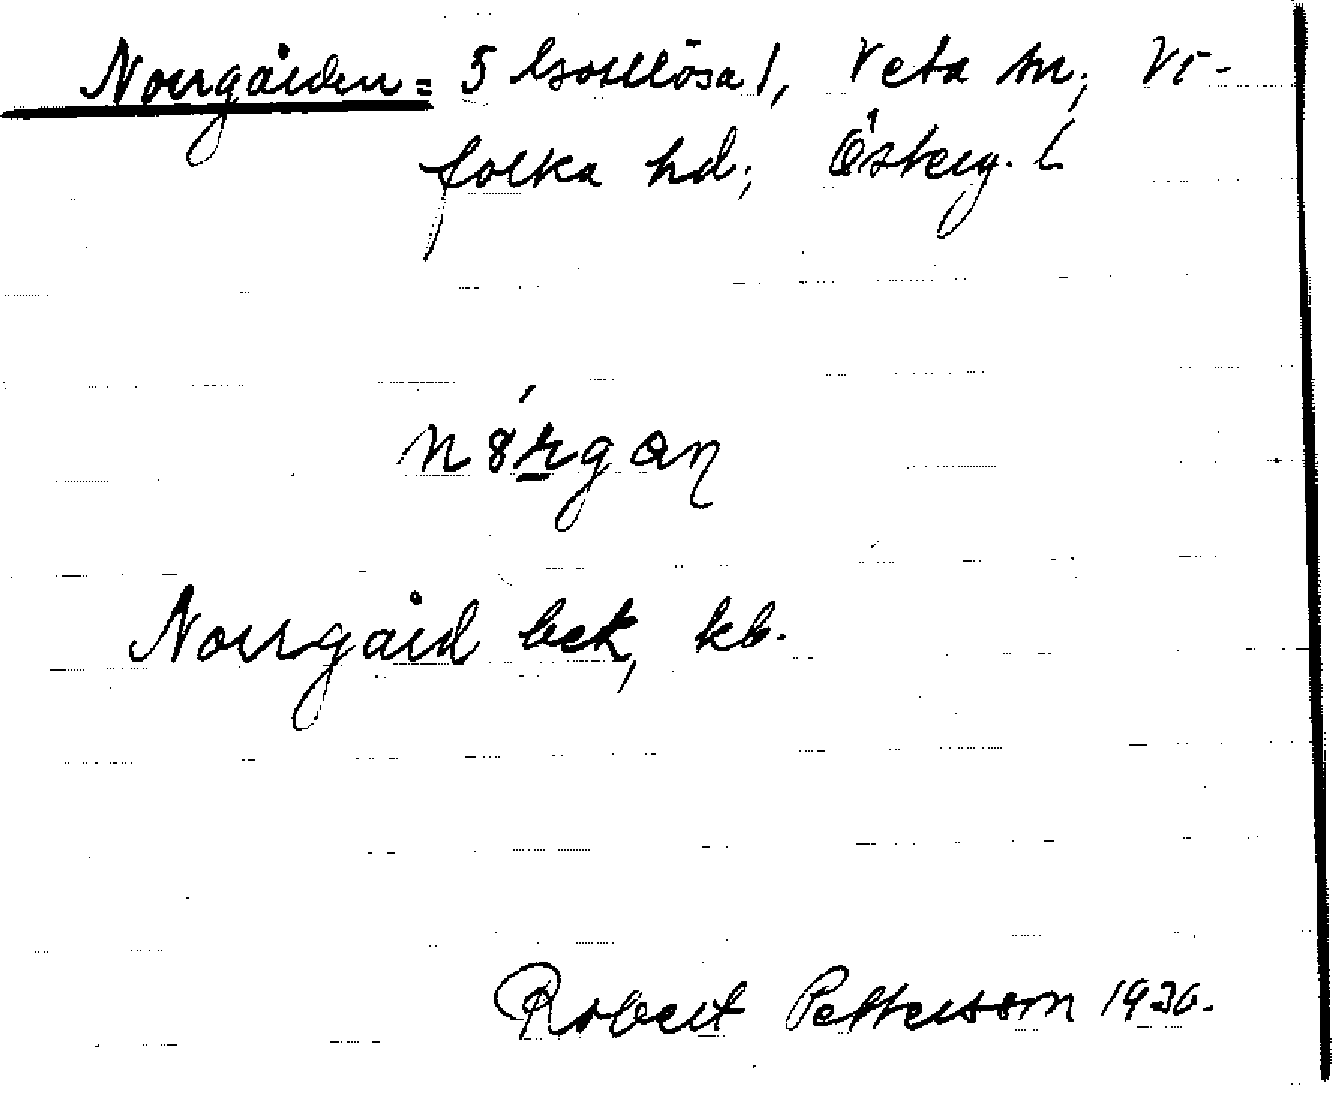 Norrgården = 5 Essellösa 1, Veta sn, Vi-
folka hd, Österg. l.
n8́rgan
Norrgård bek, kb.
Robert Pettersson 1936.